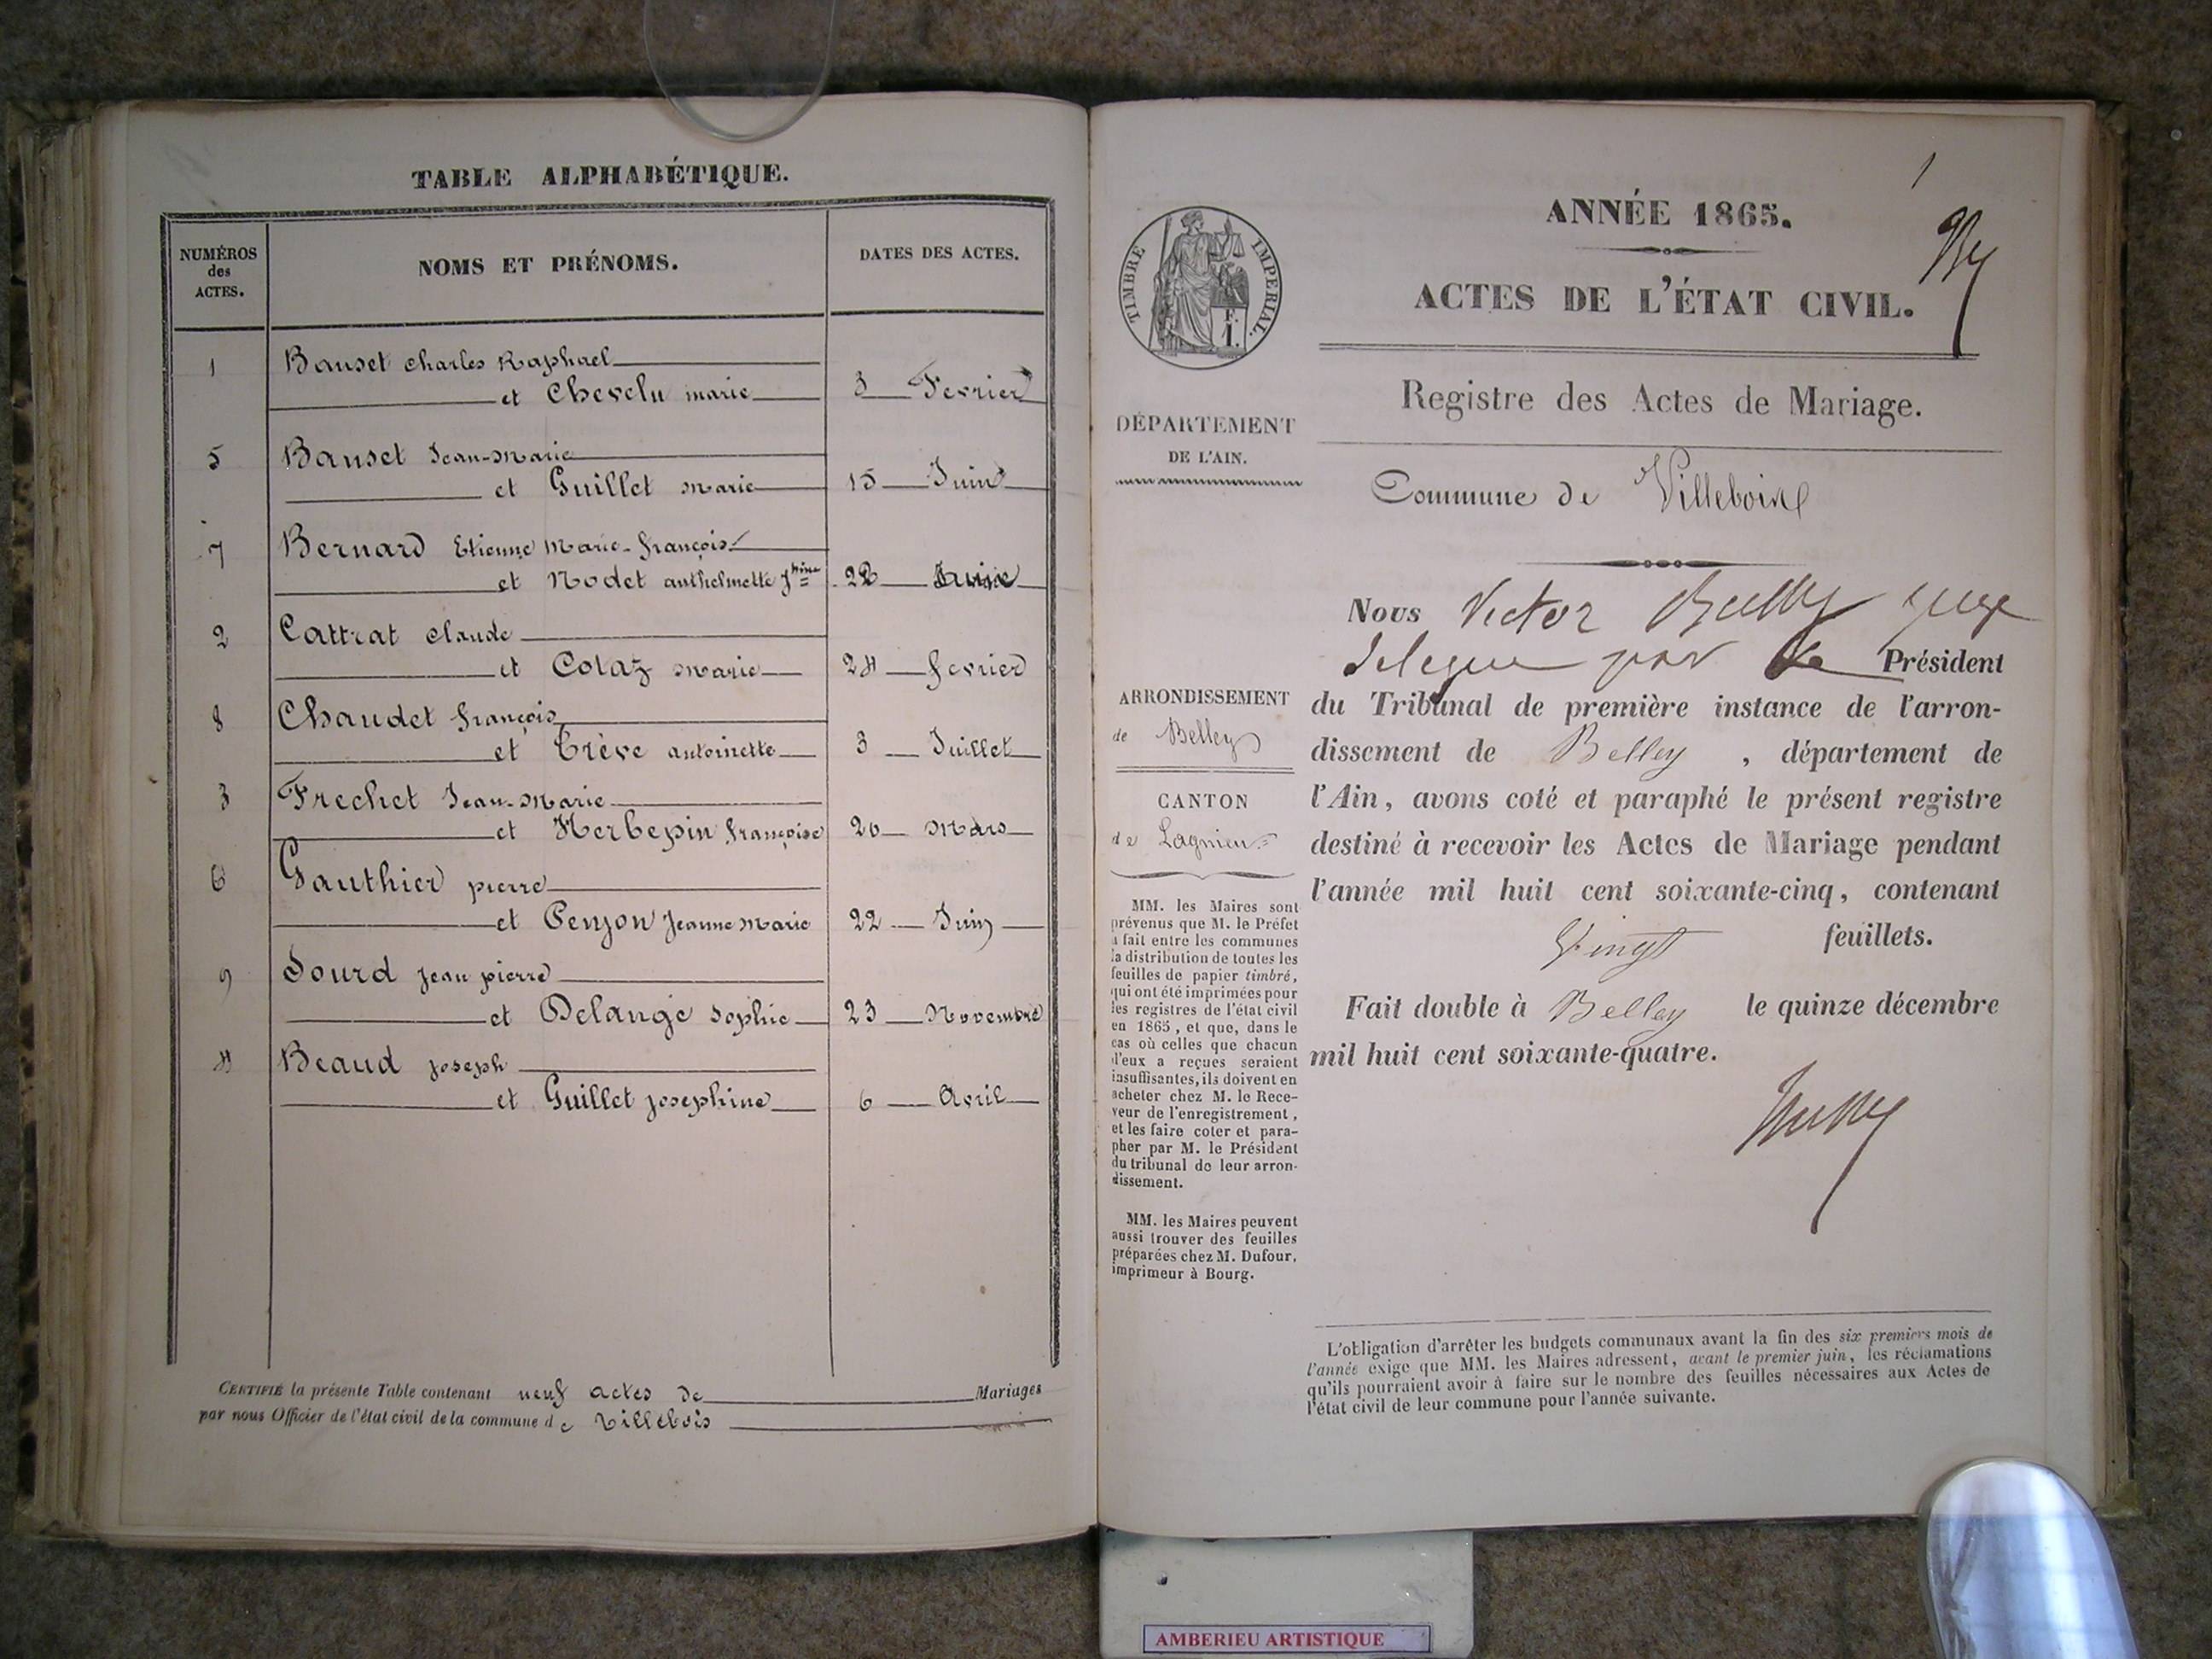 TABLE ALPHABÉTIQUE.
NUMÉROS des ACTES.
NOMS ET PRÉNOMS.
DATES DES ACTES.
1 Banset Charles Raphael
et Chevelu marie 3 Fevrier
5 Banset Jean-Marie
et Guillet Marie 15 Juin
7 Bernard Etienne Marie-françois
et Nodet anthelmette 22
2 Cattrat Claude
et Colaz Marie 24 fevrier
8 Chaudet françois
et Trève antoinette 3 Juillet
3 Frechet Jean-Marie
et Herbepin françoise 20 Mars
6 Gauthier pierre
et Penjon Jeanne Marie 22 Juin
9 Jourd jean pierre
et Delange Sophie 23 Novembre
4 Beaud joseph
et Guillet josephine 6 Avril
CERTIFIÉ la présente Table contenant neuf actes de Mariages
par nous Officier de l'état civil de la commune de Villebois
1
ANNÉE 1865.
ACTES DE L'ÉTAT CIVIL.
TIMBRE IMPERIAL.
F.
1.
Registre des Actes de Mariage.
DÉPARTEMENT
DE L'AIN.
Commune de Villebois
Nous Victor juge
delegué par le Président
ARRONDISSEMENT
de Belley
CANTON
de Lagnieu
du Tribunal de première instance de l'arron-
dissement de Belley , département de
l'Ain, avons coté et paraphé le présent registre
destiné à recevoir les Actes de Mariage pendant
l'année mil huit cent soixante-cinq, contenant
Vingt feuillets.
Fait double à Belley le quinze décembre
mil huit cent soixante-quatre.
MM. les Maires sont
prévenus que M. le Préfet
a fait entre les communes
la distribution de toutes les
feuilles de papier timbré,
qui ont été imprimées pour
les registres de l'état civil
en 1865, et que, dans le
cas où celles que chacun
d'eux a reçues seraient
insuffisantes, ils doivent en
acheter chez M. le Rece-
veur de l'enregistrement,
et les faire coter et para-
pher par M. le Président
du tribunal de leur arron-
dissement.
MM. les Maires peuvent
aussi trouver des feuilles
préparées chez M. Dufour,
imprimeur à Bourg.
L'obligation d'arrêter les budgets communaux avant la fin des six premiers mois de
l'année exige que MM. les Maires adressent, avant le premier juin, les réclamations
qu'ils pourraient avoir à faire sur le nombre des feuilles nécessaires aux Actes de
l'état civil de leur commune pour l'année suivante.
AMBERIEU ARTISTIQUE